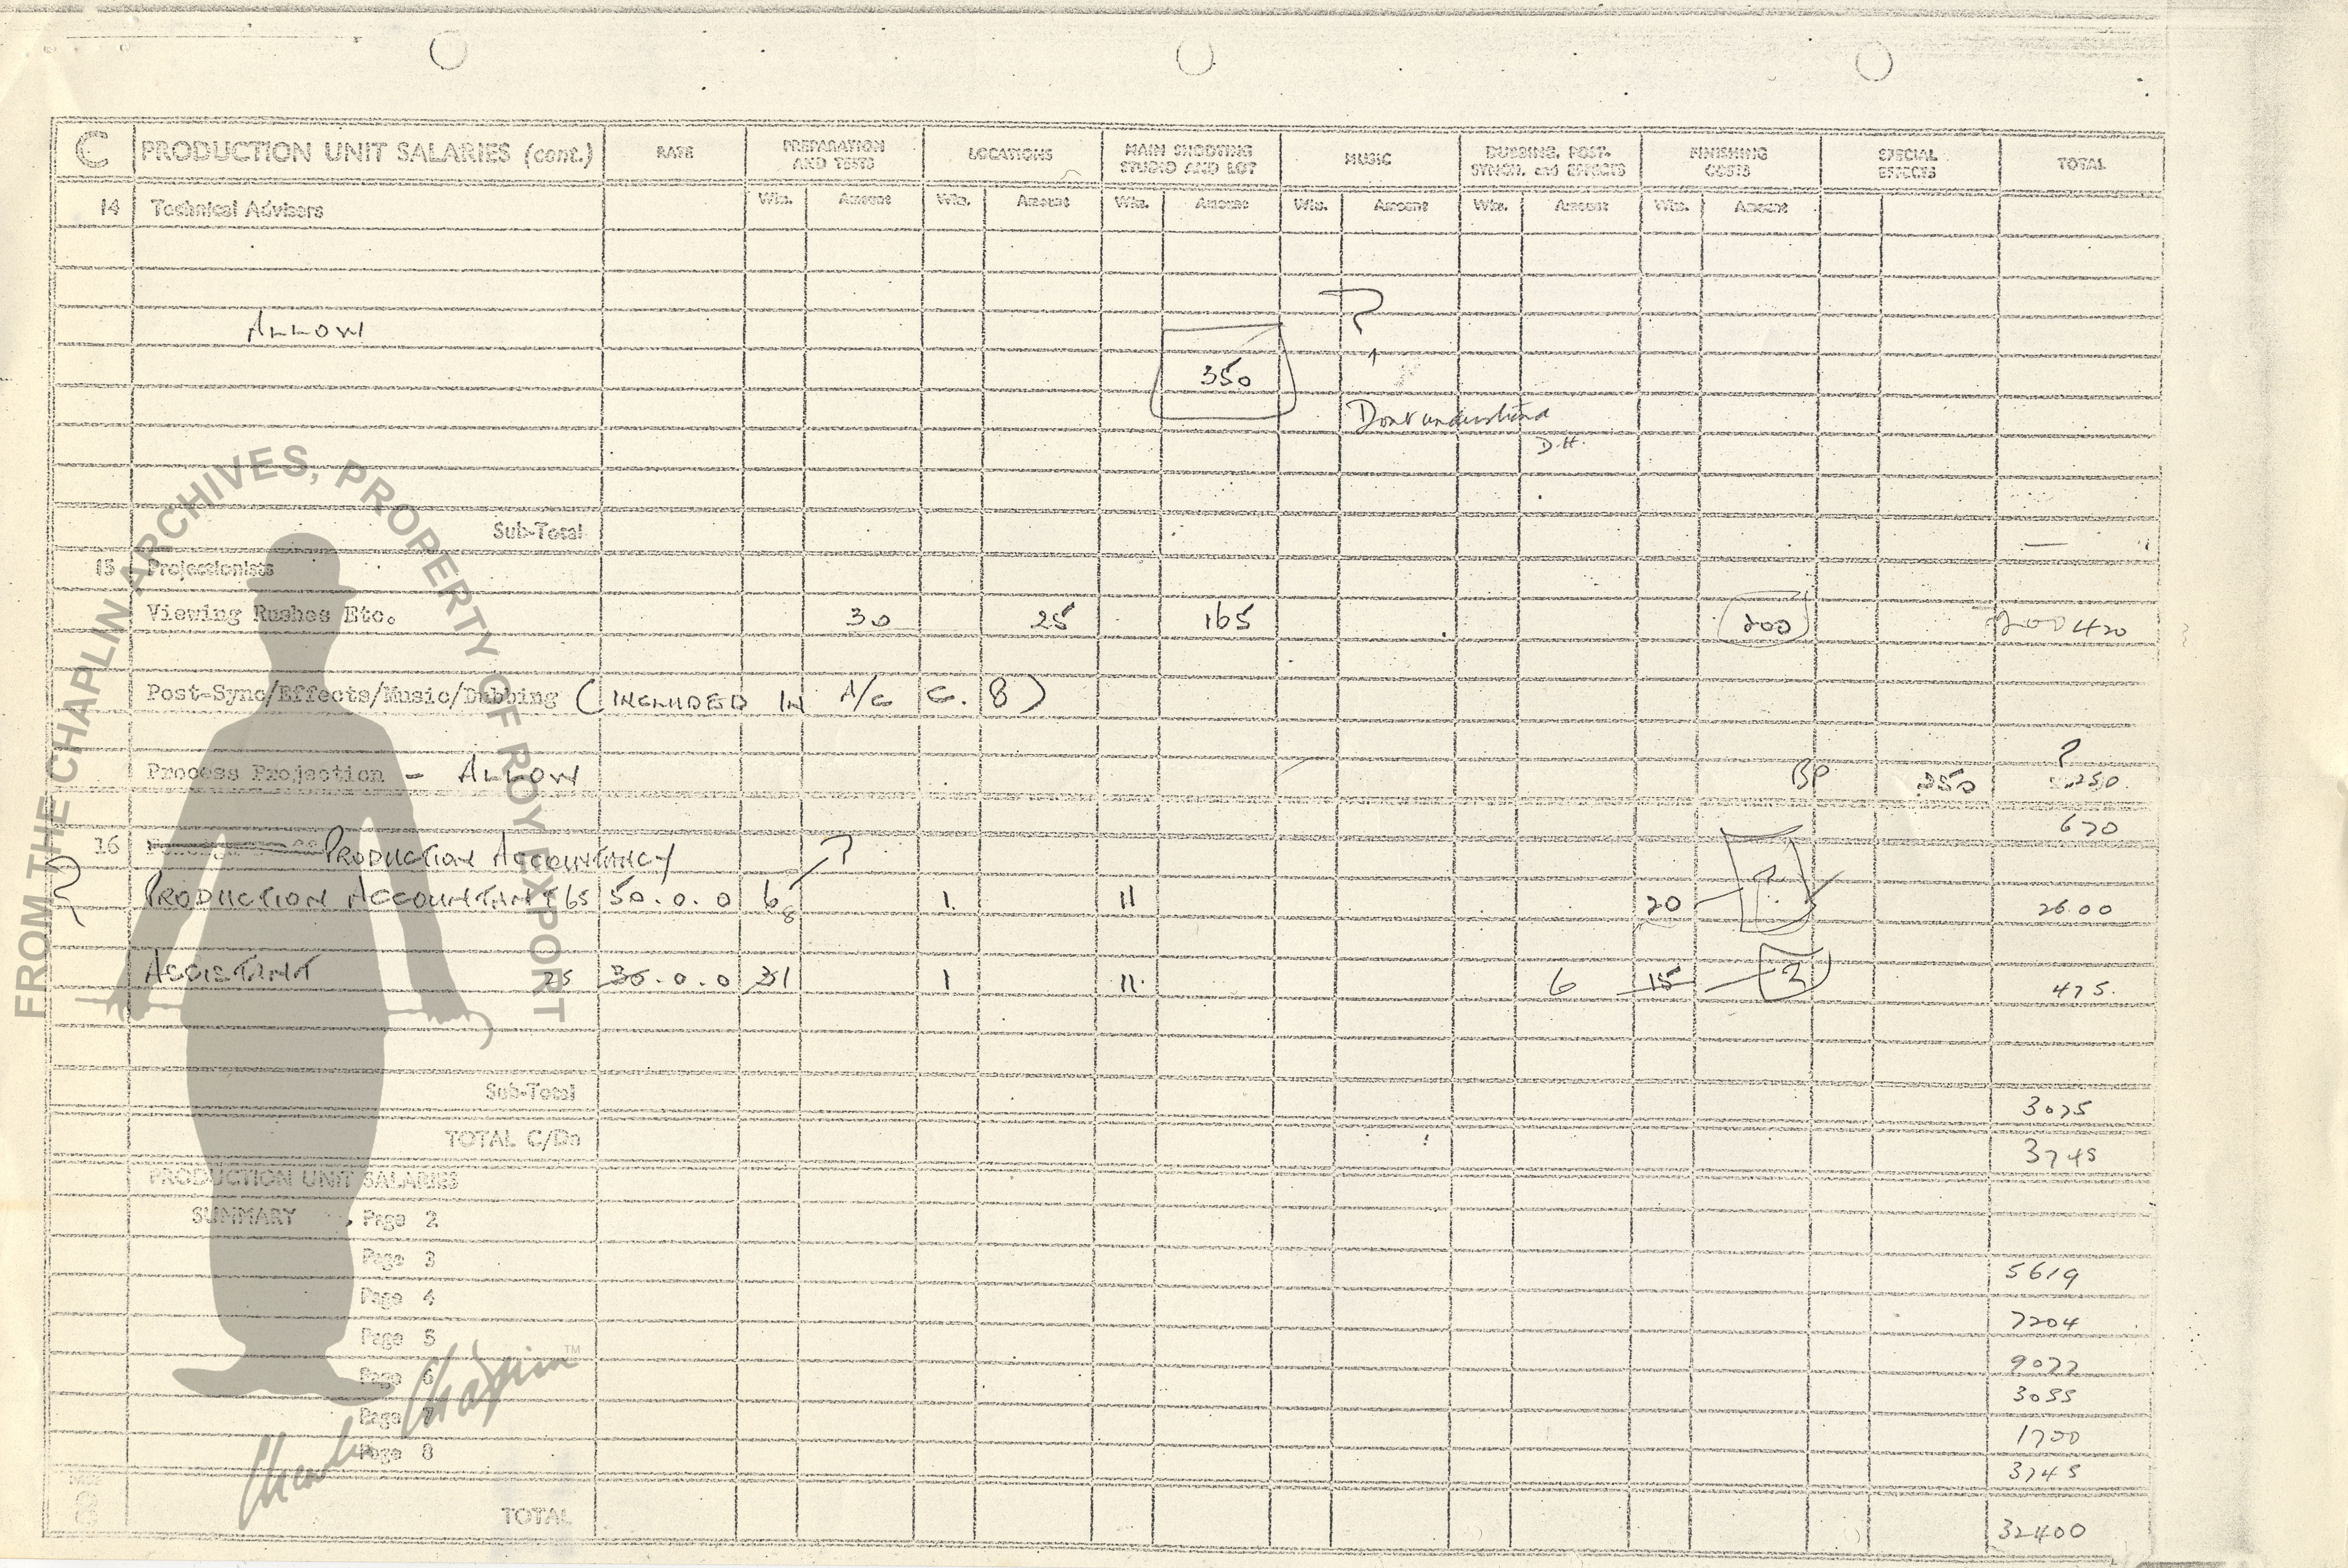 C PRODUCTION UNIT SALARIES (cont.) RATE PREPARATION AND TESTS LOCATIONS MAIN SHOOTING STUDIO AND LOT MUSIC DUBBING, POST-SYNCH. and EFFECTS FINISHING COSTS SPECIAL EFFECTS TOTAL
14 Technical Advisers Wks. Amount Wks. Amount Wks. Amount Wks. Amount Wks. Amount Wks. Amount
?
ALLOW
350
Dont understand
D.H.
Sub-Total —
15 Projectionists
Viewing Rushes Etc. 30 25 165 200 200 420
Post-Sync/Effects/Music/Dubbing (INCLUDED IN A/C C. 8)
?
Process Projection - ALLOW BP 250 250
670
16 PRODUCTION ACCOUNTANCY ?
? PRODUCTION ACCOUNTANT 65 50.0.0 6 8 1 11 20 ? 2600
ASSISTANT 25 35.0.0 1 11 6 15 ? 475
Sub-Total 3075
TOTAL C/Dn 3745
PRODUCTION UNIT SALARIES
SUMMARY Page 2
Page 3 5619
Page 4 7204
Page 5 9077
Page 6 3055
Page 7 1700
Page 8 3745
TOTAL 32400
FROM THE CHAPLIN ARCHIVES, PROPERTY OF ROY EXPORT
Charles Chaplin TM